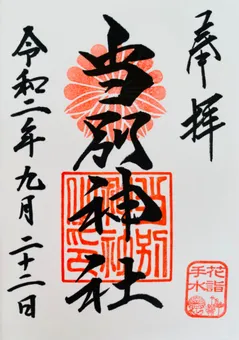 奉拝
当別神社
令和二年九月二十二日
花詣
手水